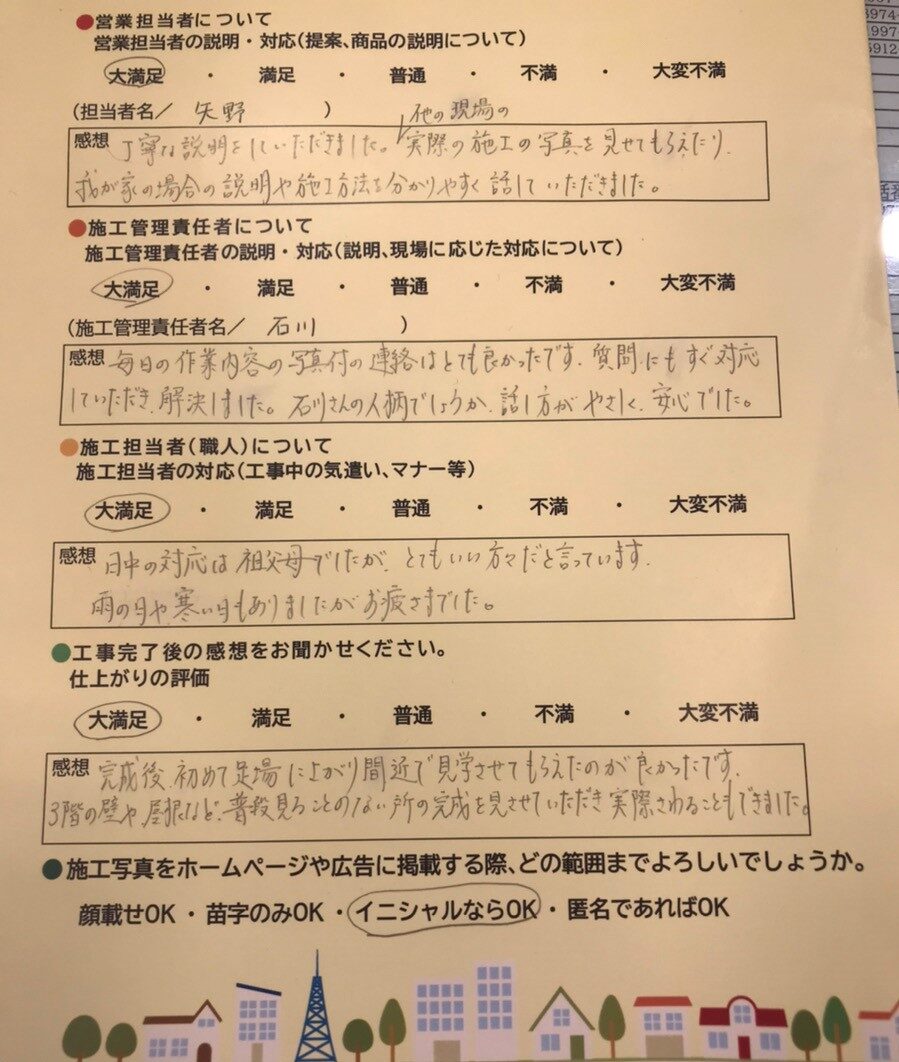 ●営業担当者について
営業担当者の説明・対応(提案、商品の説明について)
大満足 ・ 満足 ・ 普通 ・ 不満 ・ 大変不満
(担当者名/ 矢野 )
他の現場の
感想 丁寧な説明をしていただきました。実際の施工の写真を見せてもらえたり、
我が家の場合の説明や施工方法を分かりやすく話していただきました。
●施工管理責任者について
施工管理責任者の説明・対応(説明、現場に応じた対応について)
大満足 ・ 満足 ・ 普通 ・ 不満 ・ 大変不満
(施工管理責任者名/ 石川 )
感想 毎日の作業内容の写真付の連絡はとても良かったです。質問にもすぐ対応
していただき、解決しました。石川さんの人柄でしょうか、話し方がやさしく、安心でした。
●施工担当者(職人)について
施工担当者の対応(工事中の気遣い、マナー等)
大満足 ・ 満足 ・ 普通 ・ 不満 ・ 大変不満
感想 日中の対応は祖父母でしたが、とてもいい方々だと言っています。
雨の日や寒い日もありましたがお疲さまでした。
●工事完了後の感想をお聞かせください。
仕上がりの評価
大満足 ・ 満足 ・ 普通 ・ 不満 ・ 大変不満
感想 完成後、初めて足場に上がり間近で見学させてもらえたのが良かったです。
3階の壁や、屋根など、普段見ることのない所の完成を見させていただき実際さわることもできました。
●施工写真をホームページや広告に掲載する際、どの範囲までよろしいでしょうか。
顔載せOK・苗字のみOK・イニシャルならOK・匿名であればOK